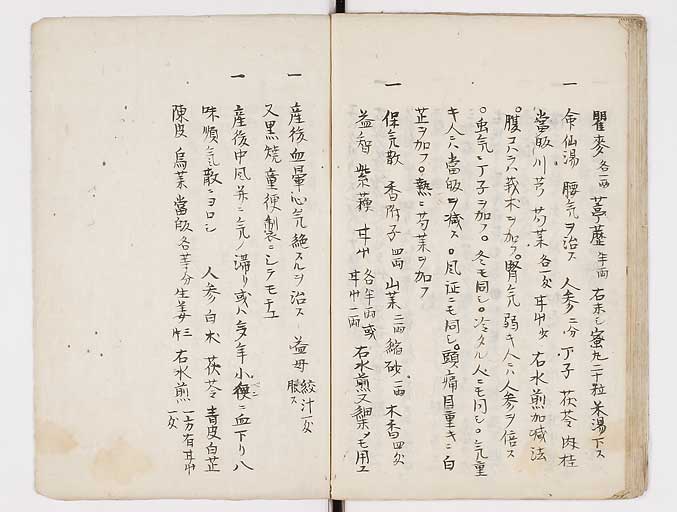 瞿麥各一両 葶藶半両 右末シ蜜丸二十粒米湯下ス
一 命仙湯 腰気ヲ治ス 人参二分 丁子 茯苓 肉桂
當皈 川芎 芍薬各一匁 甘艸少 右水煎加减法
○腹コハラハ莪朮ヲ加フ○腎気弱キ人ニハ人参ヲ倍ス
○虫気ニ丁子ヲ加フ○冬モ同シ○冷タル人ニモ同シ○気重
キ人ニハ當皈ヲ减ス○风証ニモ同シ○頭痛目重キニ白
芷ヲ加フ○熱ニ芍薬ヲ加フ
一 保気散 香附子四両 山薬二両 縮砂一両 木香四匁
益智 紫蘓 甘艸各半両或甘艸一両 右水煎又細末メモ用ユ
一 産後血暈心気絶スルヲ治ス 益母絞汁一匁服ス
又黒焼童便制ニシテモチユ
一 産後中风并ニ気ノ滞リ或ハ多年小便ニ血下リ八
味順気散ニヨロシ 人参 白朮 茯苓 青皮 白芷
陳皮 烏薬 當皈各等分 生姜三片 右水煎 一方有甘艸一匁